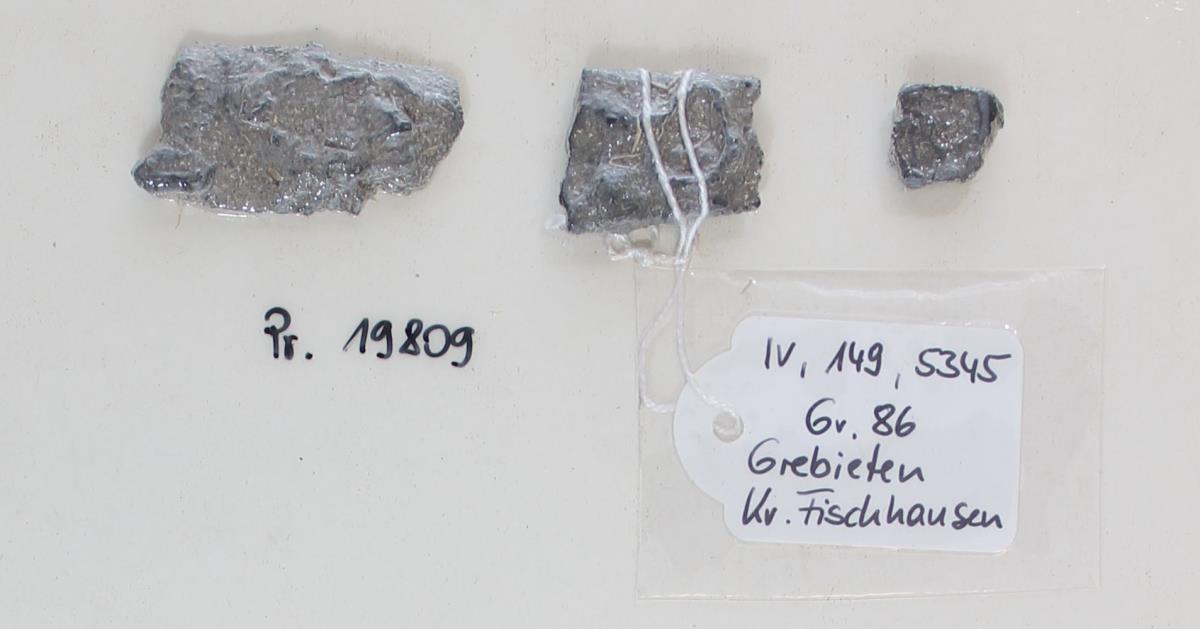 Pr. 19809
IV, 149, 5345
Gr. 86
Grebieten
Kr. Fischhausen